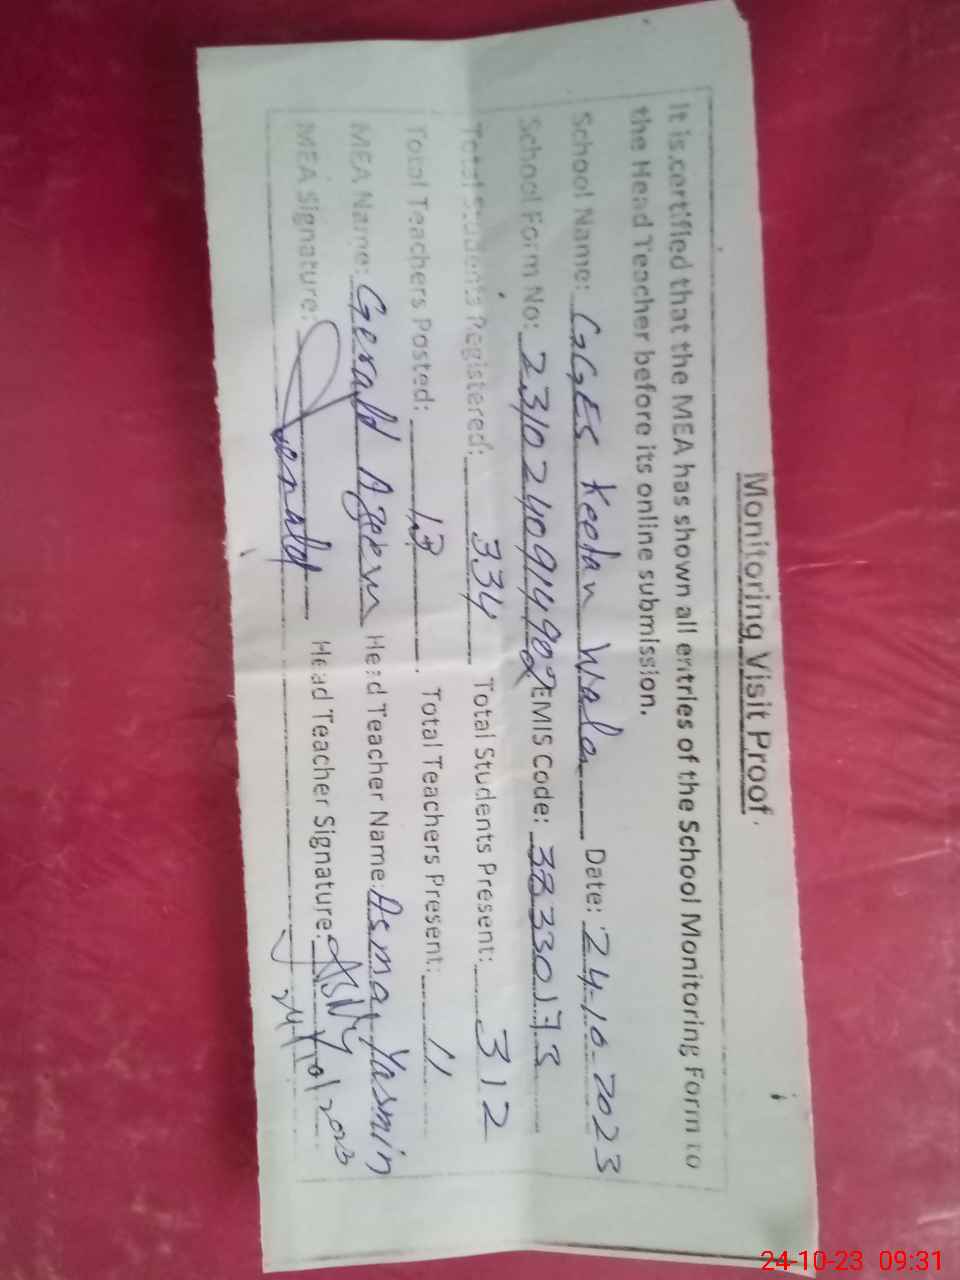 Monitoring Visit Proof
It is certified that the MEA has shown all entries of the School Monitoring Form to
the Head Teacher before its online submission.
School Name: GGES Keelan Wala Date: 24-10-2023
School Form No: EMIS Code:
Total Students Registered: 334 Total Students Present: 312
Total Teachers Posted: 13 Total Teachers Present: 11
MEA Name: Gerald Azeem Head Teacher Name: Asma Yasmin
MEA Signature: Gerald Head Teacher Signature: Asma
24/10/2023
24-10-23 09:31